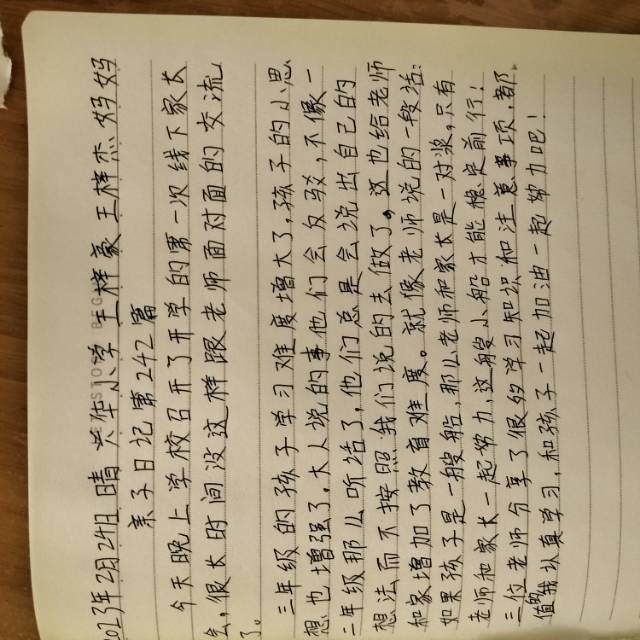 2023年2月24日 晴 兴华小学 王梓豪 王梓杰 妈妈
亲子日记第242篇
今天晚上学校召开了开学的第一次线下家长
会,很长时间没这样跟老师面对面的交流
了。
三年级的孩子学习难度增大了,孩子的小思
想也增强了,大人说的事他们会反驳,不像一
二年级那么听话了,他们总是会说出自己的
想法而不按照我们说的去做了。这也给老师
和家增加了教育难度。就像老师说的一段话:
如果孩子是一艘船,那么老师和家长是一对桨。只有
老师和家长一起努力,这艘小船才能稳定前行!
三位老师分享了很多学习知识和注意事项,都
值的我认真学习,和孩子一起加油一起努力吧!